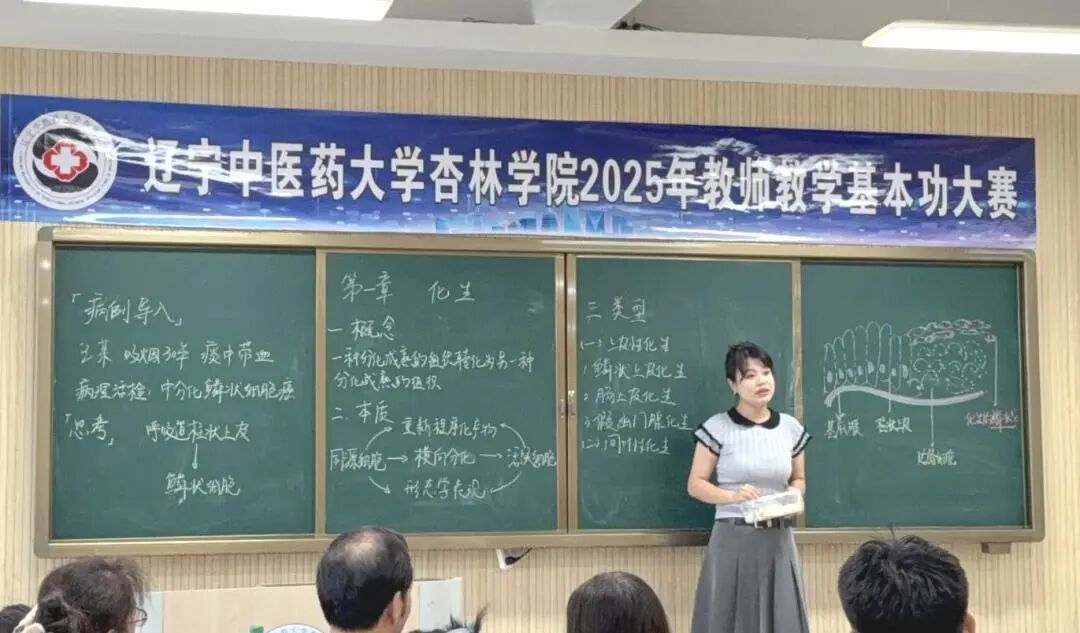 辽宁中医药大学杏林学院2025年教师教学基本功大赛
「病例导入」
王某 吸烟30年 痰中带血
病理活检:中分化鳞状细胞癌
「思考」 呼吸道柱状上皮
鳞状细胞
第一章 化生
一 概念
一种分化成熟的组织转化为另一种
分化成熟的组织
二. 本质
重新程序化产物
同源细胞 横向分化
形态学表现
三 类型
(一)上皮性化生
1. 鳞状上皮化生
2. 肠上皮化生
3. 假幽门腺化生
(二)间叶性化生
基底膜 柱状上皮